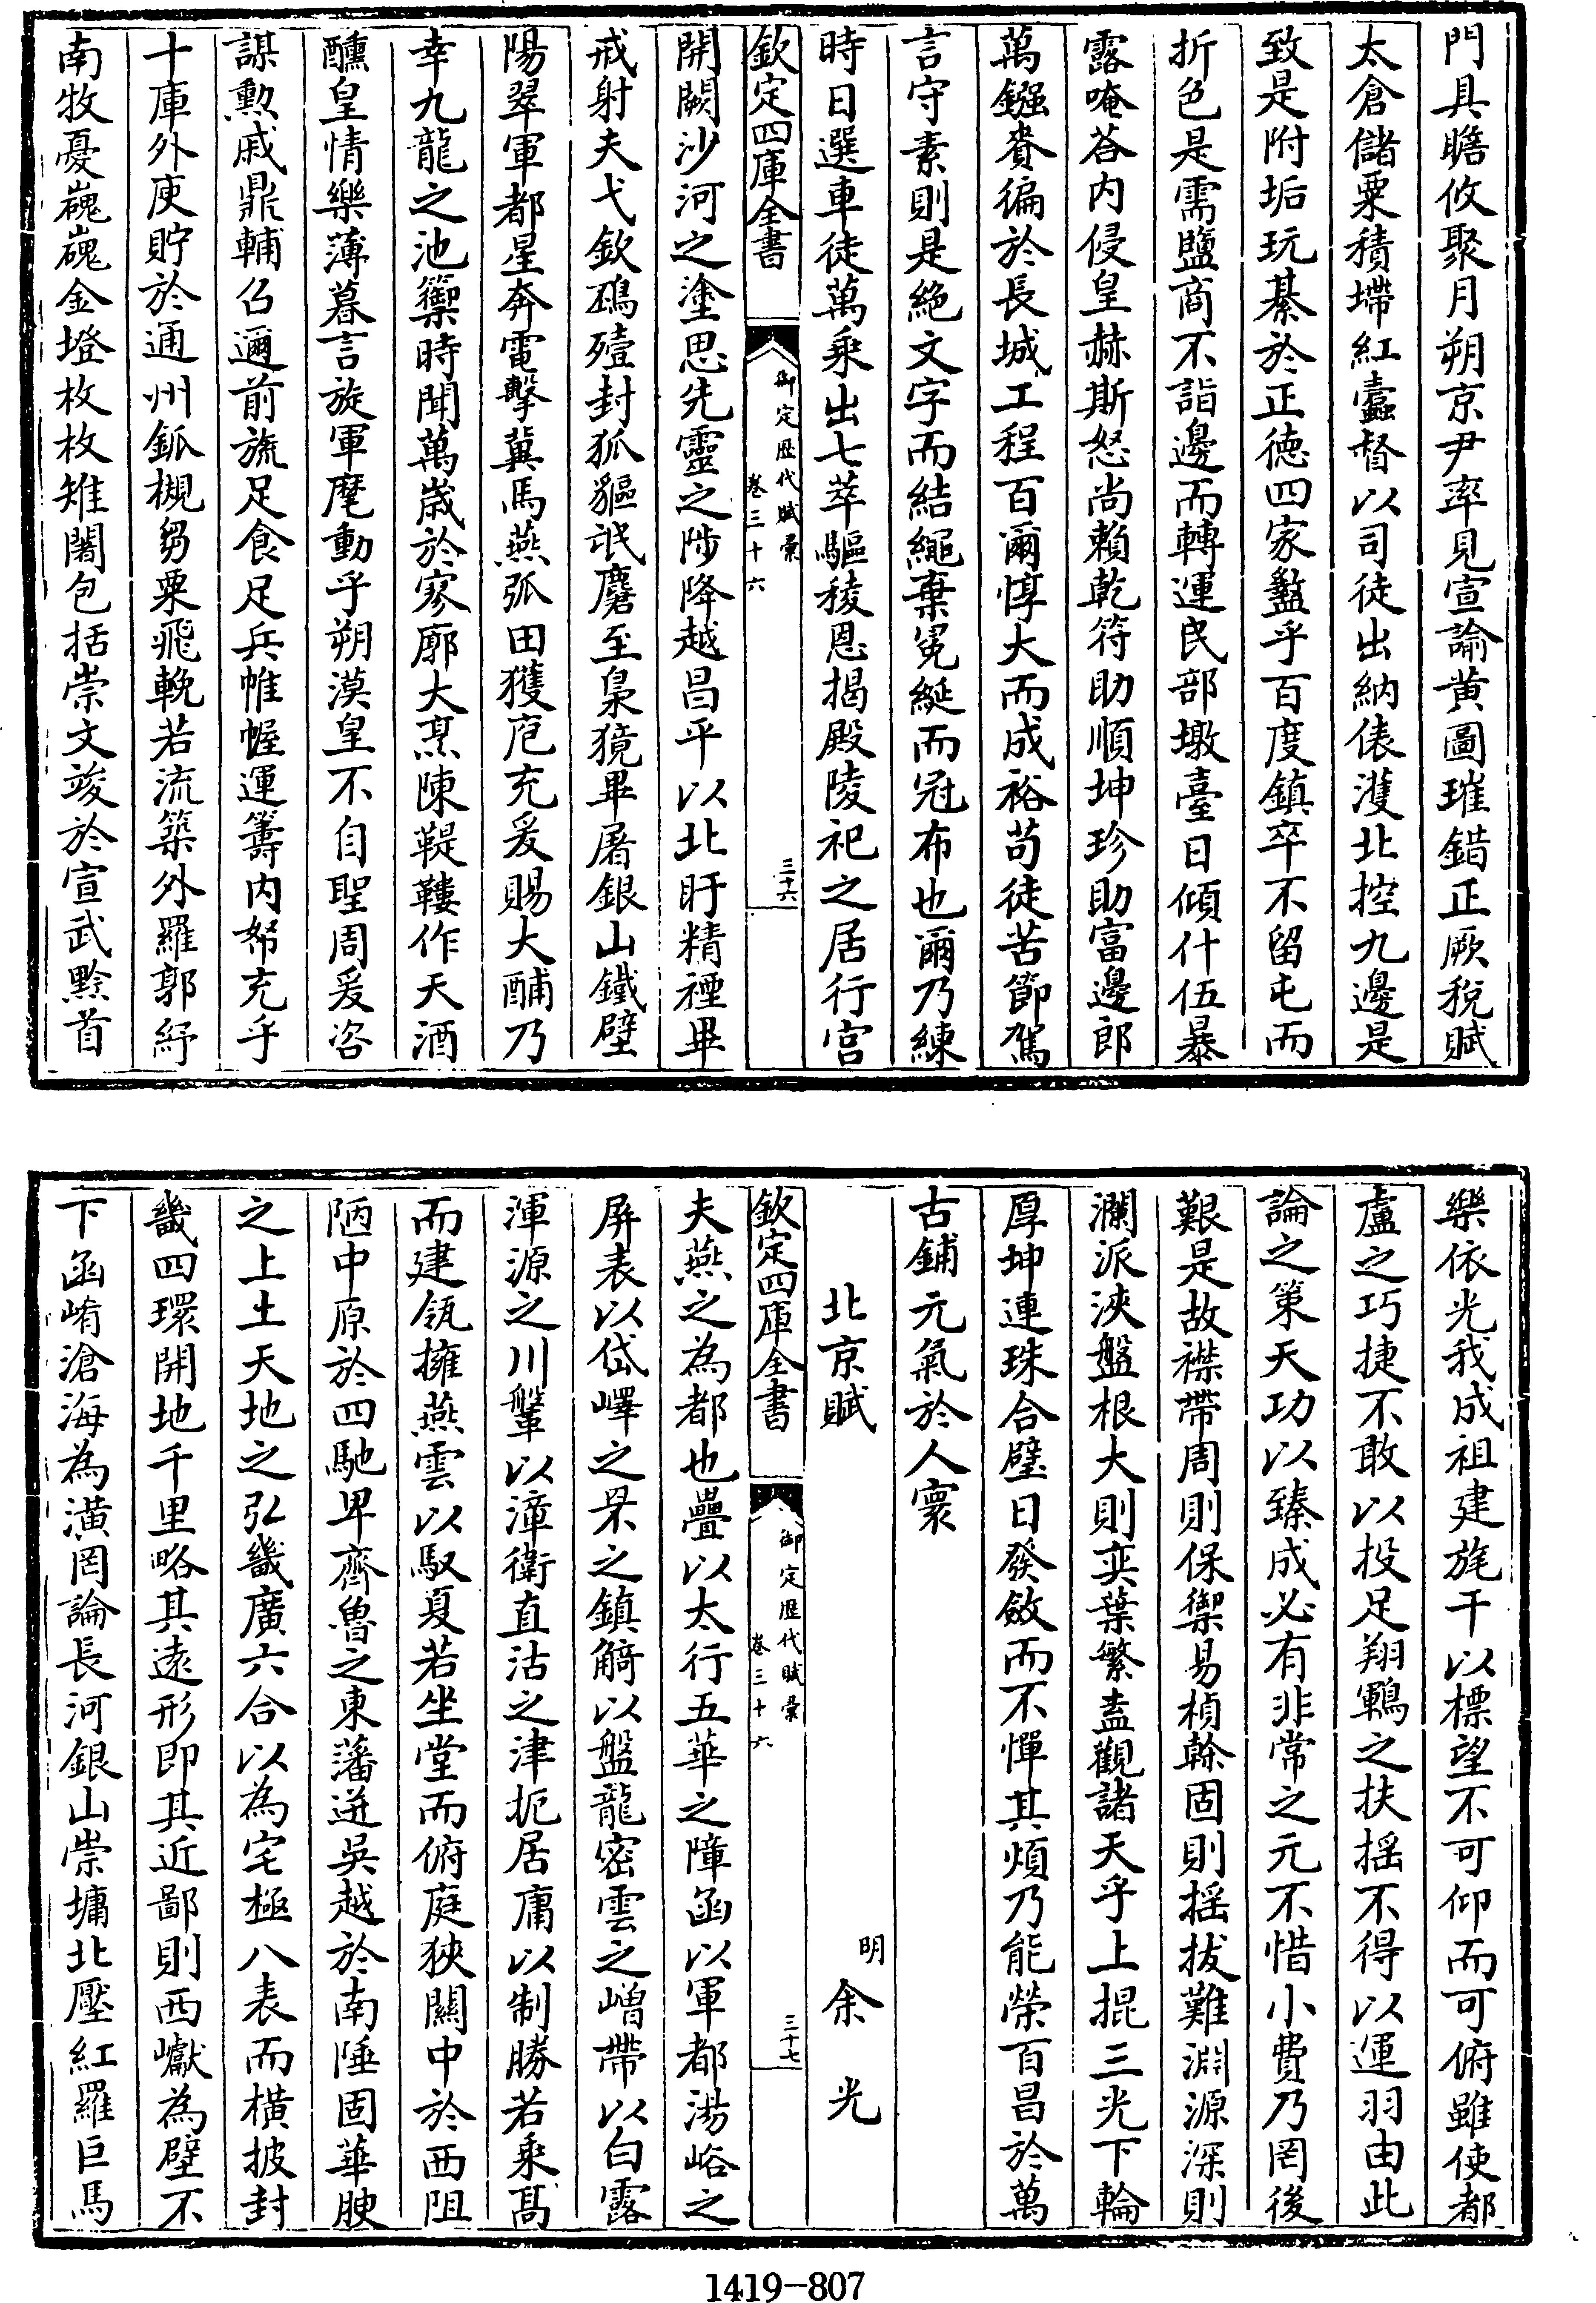 門具瞻攸聚月朔京尹率見宣諭黄圖璀錯正厥稅賦
太倉儲粟積墆紅蠧督以司徒出納俵濩北控九邊是
致是附垢玩綦於正德四家盭乎百度鎮卒不留屯而
折色是需鹽商不詣邊而轉運民部墩臺日傾什伍暴
露唵荅内侵皇赫斯怒尚賴乾符助順坤珍助富邊郎
萬鏹賚徧於長城工程百爾惇大而成裕苟徒苦節駕
言守素則是絶文字而結繩棄冕綖而冠布也爾乃練
時日選車徒萬乘出七萃驅稜恩揭殿陵祀之居行宫
欽定四庫全書
御定歴代賦彙
卷三十六
三十六
開闕沙河之塗思先靈之陟降越昌平以北盱精禋畢
戒射夫弋欽䲭殪封狐貙䟡麏至梟獍畢屠銀山鐵壁
陽翠軍都星奔電擊冀馬燕弧田獲庖充爰賜大酺乃
幸九龍之池籞時聞萬歲於寥廓大烹陳鞮鞻作天酒
醺皇情樂薄暮言旋軍麾動乎朔漠皇不自聖周爰咨
謀勲戚鼎輔召邇前旒足食足兵帷幄運籌内帑充乎
十庫外庾貯於通州鈲槻芻粟飛輓若流築外羅郭紓
南牧憂巍巍金墱枚枚雉闍包括崇文竣於宣武黔首
樂依光我成祖建旄干以標望不可仰而可俯雖使都
盧之巧捷不敢以投足翔鶤之扶摇不得以運羽由此
論之策天功以臻成必有非常之元不惜小費乃罔後
艱是故襟帶周則保禦易楨榦固則揺拔難淵源深則
瀾派浹盤根大則奕葉繁盍觀諸天乎上掍三光下輪
厚坤連珠合璧日發斂而不憚其煩乃能榮百昌於萬
古鋪元氣於人寰
北京賦
明 余光
欽定四庫全書
御定歴代賦彙
卷三十六
三十七
夫燕之為都也疊以太行五華之障函以軍都湯峪之
屏表以岱嶧之杲之鎮觭以盤龍密雲之嶒帶以白露
渾源之川鞶以漳衛直沽之津扼居庸以制勝若乘髙
而建瓴擁燕雲以馭夏若坐堂而俯庭狹闗中於西阻
陋中原於四馳卑齊魯之東藩迸吳越於南陲固華腴
之上土天地之弘畿廣六合以為宅極八表而横披封
畿四環開地千里略其逺形即其近鄙則西巘為壁不
下函崤滄海為潢罔論長河銀山崇墉北壓紅羅巨馬
1419-807